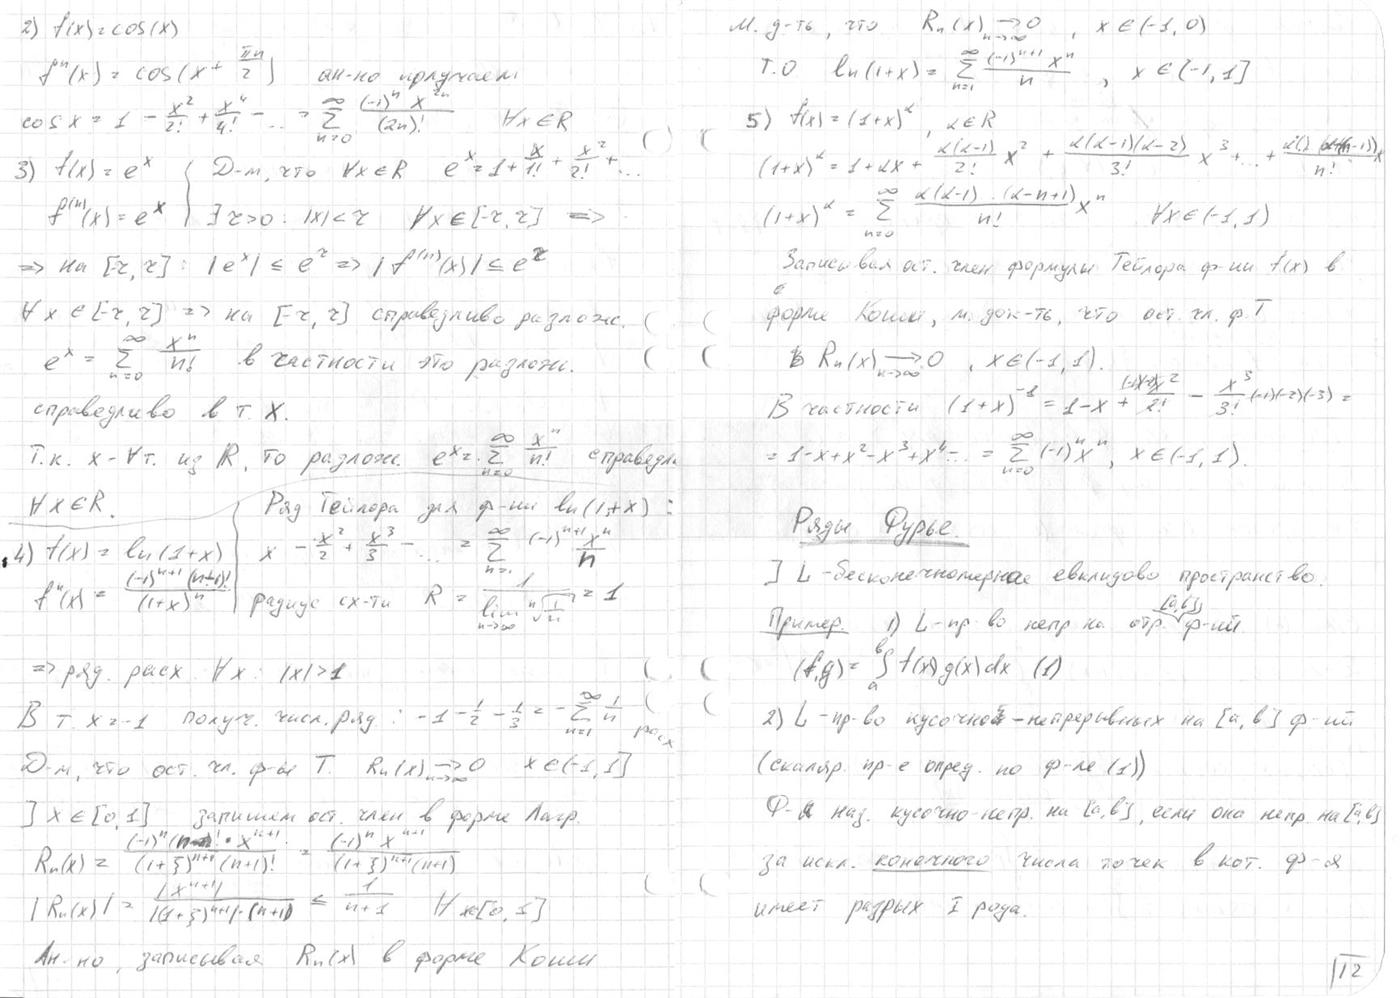 2) f(x)=cos(x)
fⁿ(x) = cos(x + πn/2) ан-но получаем
cos x = 1 - x²/2! + x⁴/4! - ... = ∑_{n=0}^{∞} (-1)ⁿ x²ⁿ/(2n)! ∀x∈R
3) f(x) = eˣ Д-м, что ∀x∈R eˣ = 1 + x/1! + x²/2! + ...
f⁽ⁿ⁾(x) = eˣ ∃ τ>0 : |x|<τ ∀x∈[-τ,τ] =>
=> на [-τ,τ] : |eˣ| ≤ e^τ => |f⁽ⁿ⁾(x)| ≤ e^τ
∀x∈[-τ,τ] => на [-τ,τ] справедливо разлож.
eˣ = ∑_{n=0}^{∞} xⁿ/n! в частности это разлож.
справедливо в т. X.
Т.к. x - ∀ т. из R, то разлож. eˣ = ∑_{n=0}^{∞} xⁿ/n! справедл
∀x∈R.
Ряд Тейлора для ф-ии ln(1+x) :
4) f(x) = ln(1+x) x - x²/2 + x³/3 - ... = ∑_{n=1}^{∞} (-1)ⁿ⁺¹ xⁿ/n
fⁿ(x) = (-1)ⁿ⁺¹(n-1)!/(1+x)ⁿ радиус сх-ти R = 1/(lim_{n→∞} ⁿ√(1/n)) = 1
=> ряд. расх. ∀x : |x|>1
В т. x = -1 получ. числ. ряд : -1 - 1/2 - 1/3 = -∑_{n=1}^{∞} 1/n расх
Д-м, что ост. чл. ф-лы Т. Rₙ(x) →_{n→∞} 0 x∈(-1,1]
] x∈[0,1] запишем ост. член в форме Лагр.
Rₙ(x) = (-1)ⁿ n! · xⁿ⁺¹/((1+ξ)ⁿ⁺¹(n+1)!) = (-1)ⁿ xⁿ⁺¹/((1+ξ)ⁿ⁺¹(n+1))
|Rₙ(x)| = |xⁿ⁺¹|/(|(1+ξ)ⁿ⁺¹|·(n+1)) ≤ 1/(n+1) ∀x∈[0,1]
Ан-но, записывая Rₙ(x) в форме Коши
м. д-ть, что Rₙ(x) →_{n→∞} 0 , x∈(-1,0)
Т.О ln(1+x) = ∑_{n=1}^{∞} (-1)ⁿ⁺¹ xⁿ/n , x∈(-1,1]
5) f(x) = (1+x)^α , α∈R
(1+x)^α = 1+αx + α(α-1)/2! x² + α(α-1)(α-2)/3! x³ + ... +
(1+x)^α = ∑_{n=0}^{∞} α(α-1)..(α-n+1)/n! xⁿ ∀x∈(-1,1)
Записывая ост. член формулы Тейлора ф-ии f(x) в
форме Коши, м. док-ть, что ост. чл. ф.Т
Rₙ(x) →_{n→∞} 0 , x∈(-1,1).
В частности (1+x)⁻¹ = 1-x + (-1)(-2)x²/2! - x³/3! (-1)(-2)(-3) =
= 1-x+x²-x³+x⁴-... = ∑_{n=0}^{∞} (-1)ⁿxⁿ, x∈(-1,1).
Ряды Фурье.
] L - бесконечномерное евклидово пространство.
Пример. 1) L - пр-во непр на отр. [a,b] ф-ий
(f,g) = ∫ₐᵇ f(x)g(x)dx (1)
2) L - пр-во кусочно-непрерывных на [a,b] ф-ий
(скаляр. пр-е опред. по ф-ле (1))
Ф-я наз. кусочно-непр. на [a,b], если она непр. на [a,b]
за искл. конечного числа точек в кот. ф-я
имеет разрых I рода.
12